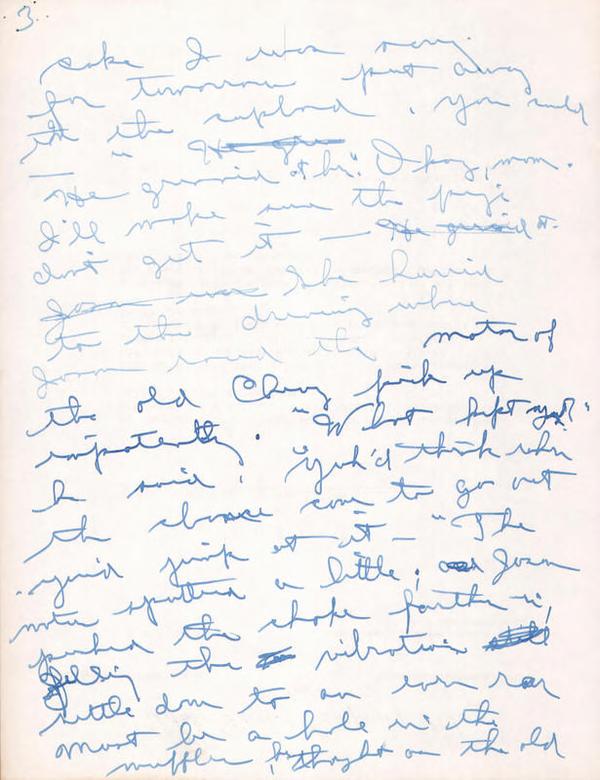 3.
cake I was saving
for tomorrow put away
in the cupboard. You could
— " He grin
He grinned at her. "Okay, mom.
I'll make sure the pigs
don't get it — He grinned at
Jason was She hurried
to the driveway where
Jason raced the motor of
the old Chevy pick up
impatiently. "What kept you?"
he said. "Yuh'd think when
the chance come to go out
you'd jump at it — " The
motor sputtered a little; and Jason
pushed the choke farther in,
feeling the vibration still
settle down to an even roar
Must be a hole in the
muffler, he thought as the old